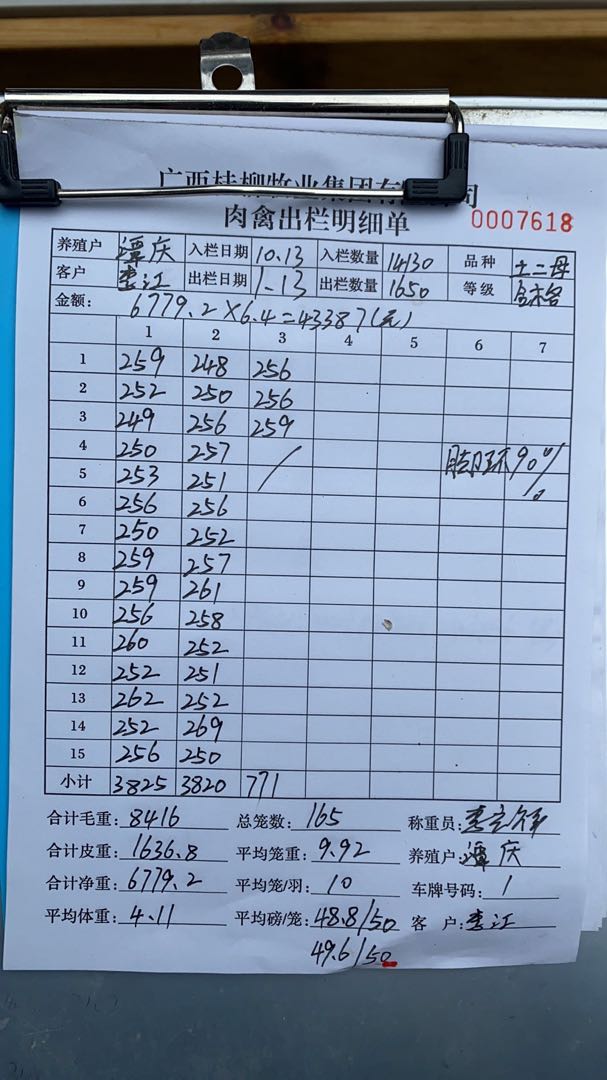 广西桂柳牧业集团有 司
肉禽出栏明细单 0007618
养殖户 谭庆 入栏日期 10.13 入栏数量 14130 品种 土二母
客户 李江 出栏日期 1-13 出栏数量 1650 等级
金额: 6779.2×6.4=43387(元)
1 2 3 4 5 6 7
1 259 248 256
2 252 250 256
3 249 256 259
4 250 257 / 脚环90%
5 253 251
6 256 256
7 250 252
8 259 257
9 259 261
10 256 258
11 260 252
12 252 251
13 262 252
14 252 269
15 256 250
小计 3825 3820 771
合计毛重: 8416 总笼数: 165 称重员:
合计皮重: 1636.8 平均笼重: 9.92 养殖户: 谭庆
合计净重: 6779.2 平均笼/羽: 10 车牌号码: 1
平均体重: 4.11 平均磅/笼: 48.8/50 客 户: 李江
49.6/50